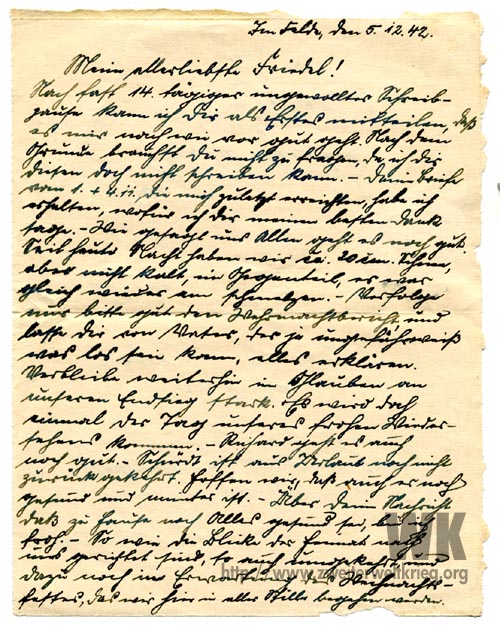 Im Felde, den 5.12.42.
Meine allerliebste Friedel!
Nach fast 14 tägiger ungewollter Schreib-
pause kann ich Dir als Erstes mitteilen, daß
es mir nach wie vor gut geht. Nach dem
Grunde brauchst Du nicht zu fragen, da ich Dir
diesen doch nicht schreiben kann. – Deine Briefe
vom 1. + 4.11. die mich zuletzt erreichten, habe ich
erhalten, wofür ich Dir meinen besten Dank
sage. – Wie gesagt uns Allen geht es noch gut.
Seit heute Nacht haben wir ca. 20 cm. Schnee,
aber nicht kalt, im Gegenteil, es war
gleich wieder am schmelzen. – Verfolge
nur bitte gut den Wehrmachtbericht und
lasse Dir von Vater, der ja ungefähr weiß
was los sein kann, alles erklären.
Verbleibe weiterhin im Glauben an
unseren Endsieg stark. Es wird doch
einmal der Tag unseres frohen Wieder-
sehens kommen. – Richard geht es auch
noch gut. – ist aus Urlaub noch nicht
zurückgekehrt. Hoffen wir, daß auch er noch
gesund und munter ist. – Über Deine Nachricht
daß zu Hause noch Alles gesund sei, bin ich
froh. – So wie die Blicke der Heimat nach
uns gerichtet sind, so auch umgekehrt und
dazu noch im des Weihnachts-
festes, das wir hier in aller Stille begehen werden.
WK
http://www.zweiterweltkrieg.org